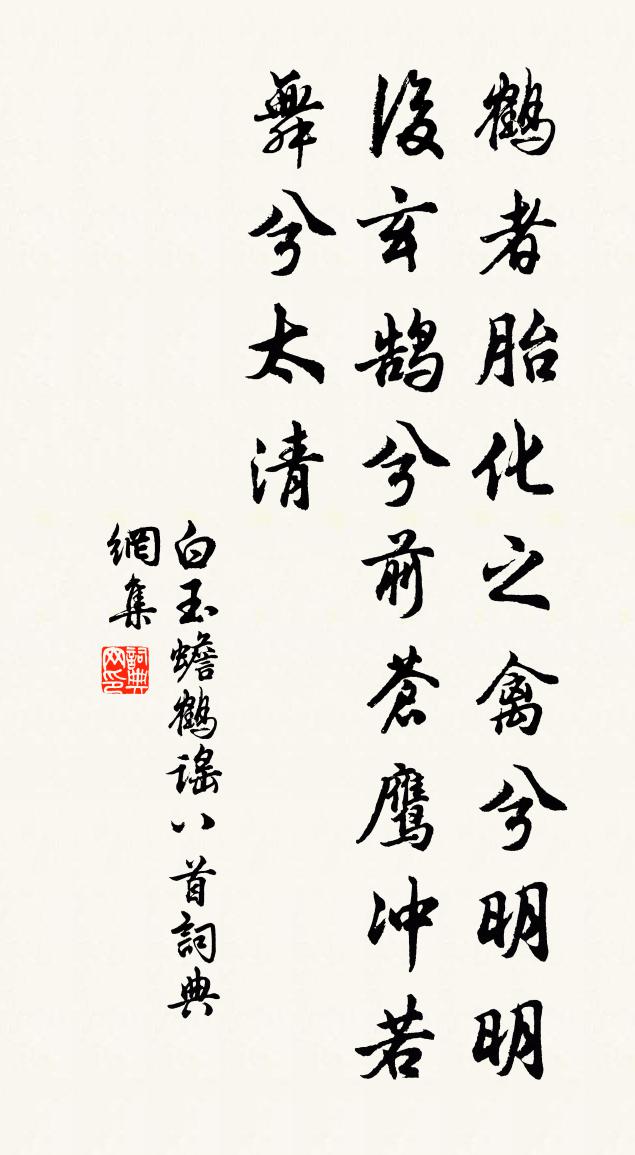 鶴者胎化之禽兮明明
後玄鵠兮前蒼鷹冲若
舞兮太清
白玉蟾鶴謡八首詞典
網集
詞典
网印